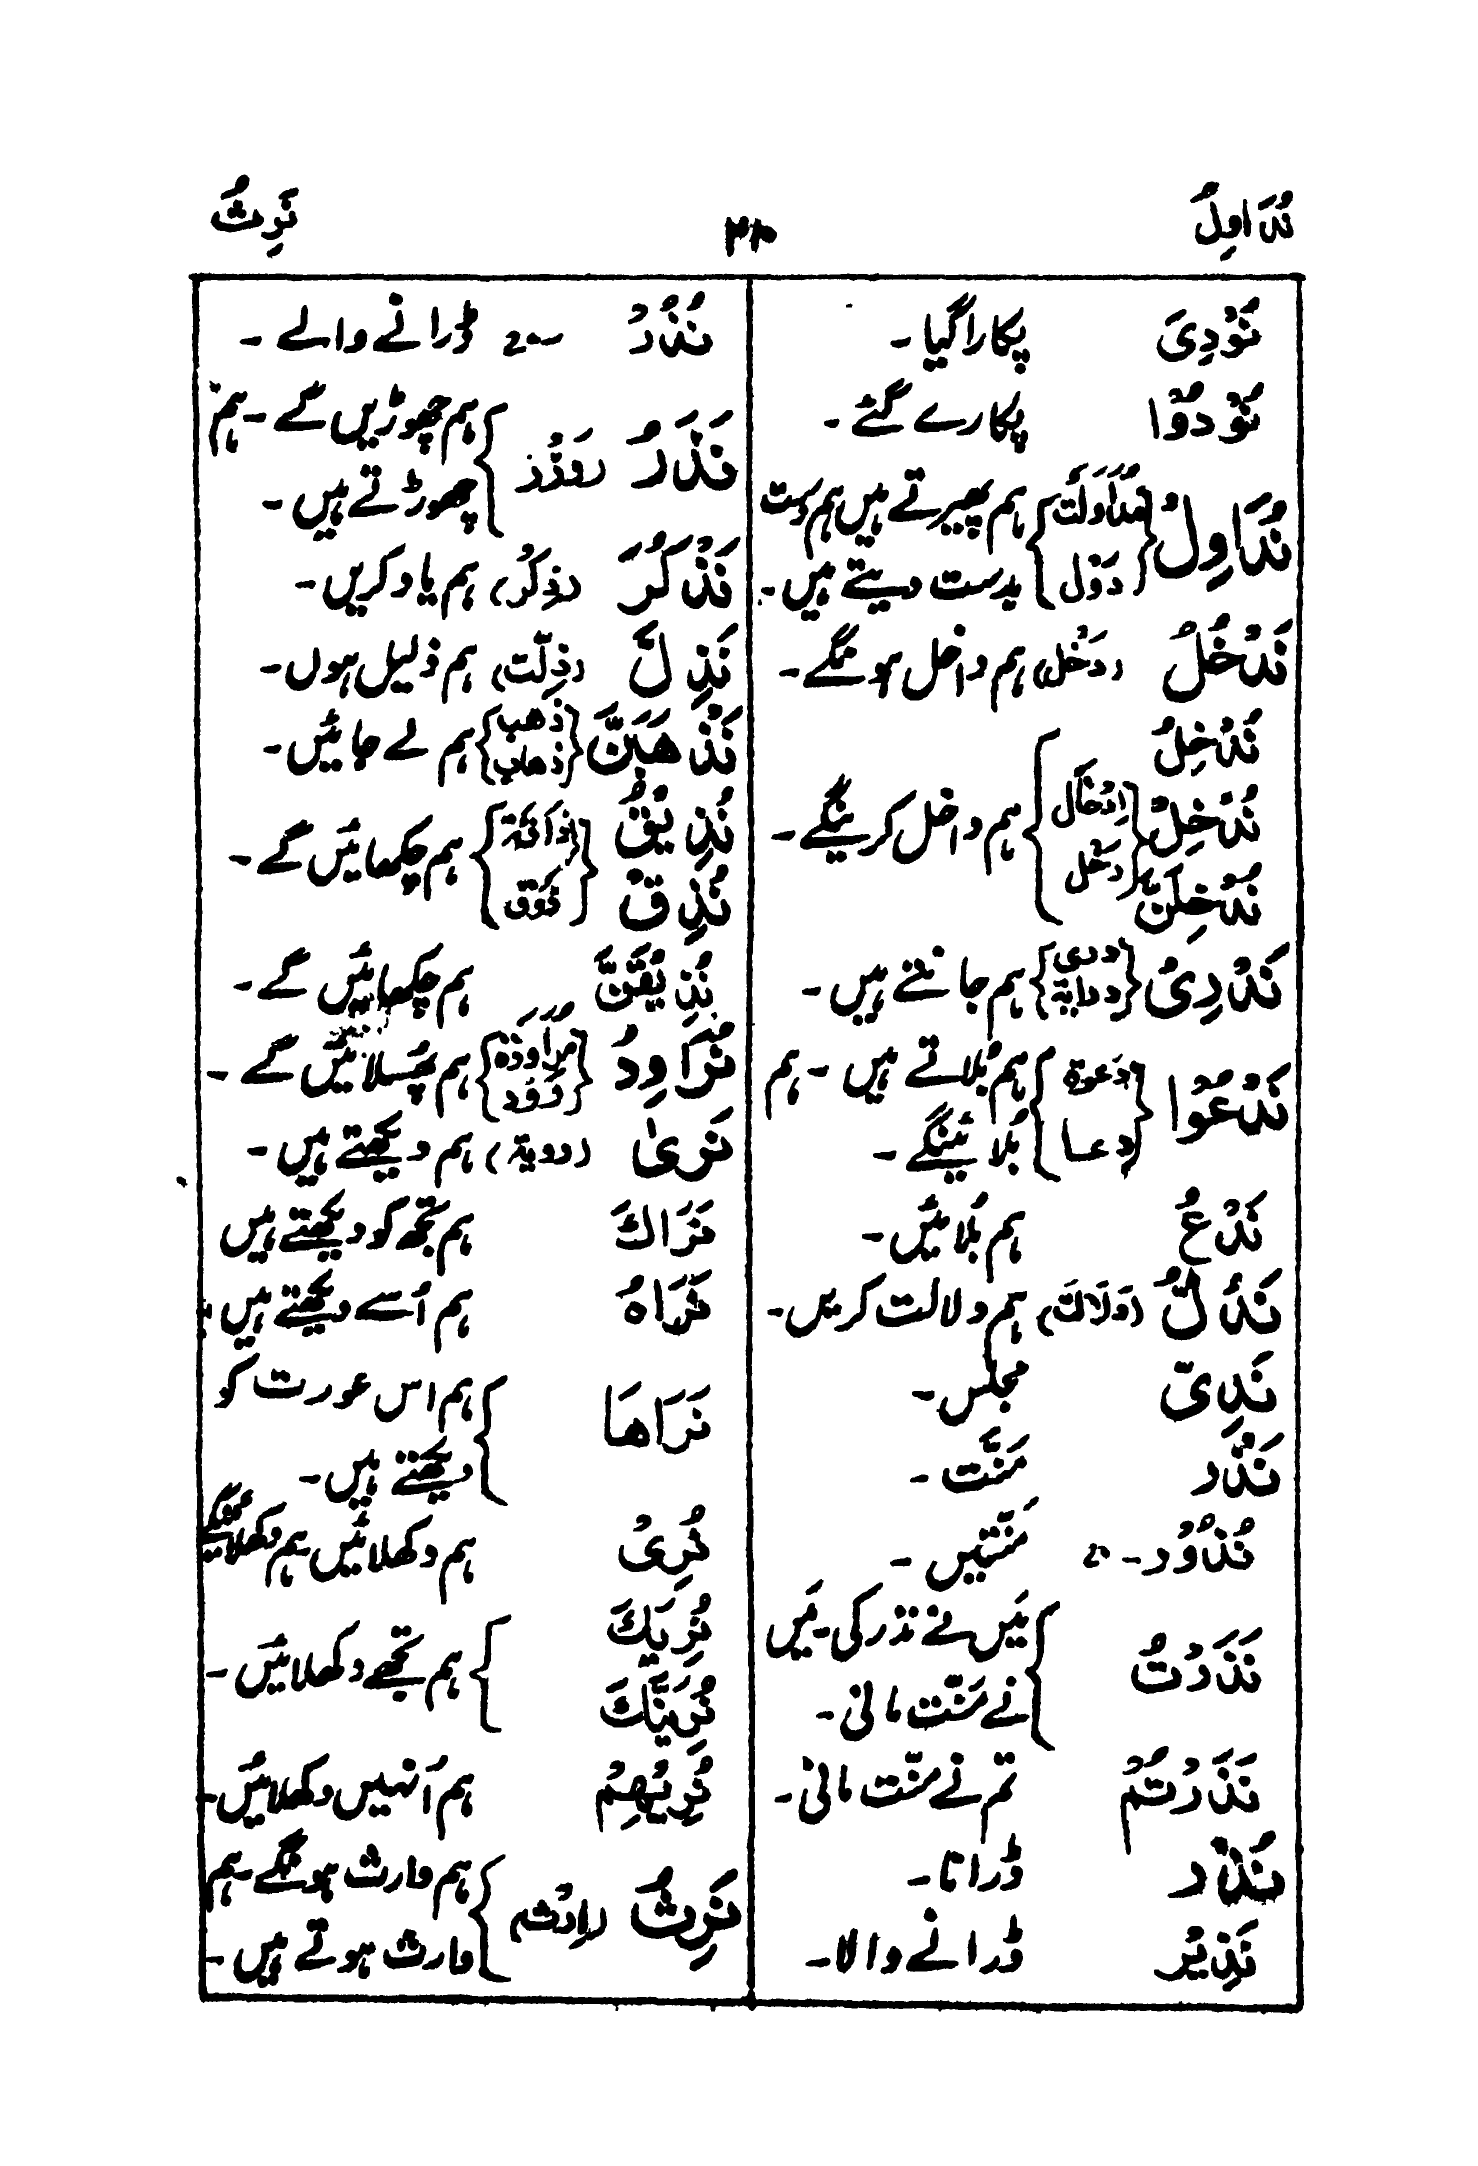 نُدَاوِلُ
نَرِثُ
نُوْدِیَ پکارا گیا ۔
نُوْدُوْا پکارے گئے ۔
نُدَاوِلُ {مُدَاوَلَت دَوْل} ہم پھیرتے ہیں ہم دست
بدست دیتے ہیں۔
نَدْخُلُ (دَخْل) ہم داخل ہونگے ۔
نُدْخِلُ
نُدْخِلْ {اِدْخَال دَخْل} ہم داخل کرینگے ۔
نُدْخِلَنَّ
نَدْرِیْ {دری درایۃ} ہم جانتے ہیں ۔
نَدْعُوْا {دَعوۃ دعا} ہم بُلاتے ہیں ۔ ہم
بُلائینگے ۔
نَدْعُ ہم بُلائیں ۔
نَدُلُّ (دَلَالَت) ہم دلالت کریں۔
نَدِیّ مجلس ۔
نَذْر مَنَّت ۔
نُذُوْر ۔ مَنّتیں ۔
نَذَرْتُ {مَیں نے نذر کی ۔ مَیں
نے مَنّت مانی ۔
نَذَرْتُمْ تم نے منّت مانی ۔
نُذْر ڈرانا ۔
نَذِیْر ڈرانے والا ۔
نُذُرْ ڈرانے والے ۔
نَذَرُ (وَذْر) {ہم چھوڑیں گے ۔ ہم
چھوڑتے ہیں ۔
نَذْكُرَ (ذِکْر) ہم یاد کریں ۔
نَذِلَّ (ذِلّت) ہم ذلیل ہوں ۔
نَذْهَبَنَّ {ذَهب ذهاب} ہم لے جائیں ۔
نُذِیْقُ
نُذِقْ {اِذَاقَة ذَوْق} ہم چکھائیں گے ۔
نُذِیْقَنَّ ہم چکھائیں گے ۔
نُرَاوِدُ {مراودۃ رَوْد} ہم پھسلائیں گے ۔
نَریٰ (رویۃ) ہم دیکھتے ہیں ۔
نَرَاكَ ہم تجھ کو دیکھتے ہیں
نَرَاهُ ہم اُسے دیکھتے ہیں ۔
نَرَاهَا {ہم اس عورت کو
دیکھتے ہیں ۔
نُرِیْ ہم دکھلائیں ہم دکھلائینگے
نُرِیَكَ
نُرِیَنَّكَ {ہم تجھے دکھلائیں ۔
نُرِیْهِمْ ہم اُنہیں دکھلائیں ۔
نَرِثُ (اِرْث) {ہم وارث ہونگے ۔ ہم
وارث ہوتے ہیں ۔